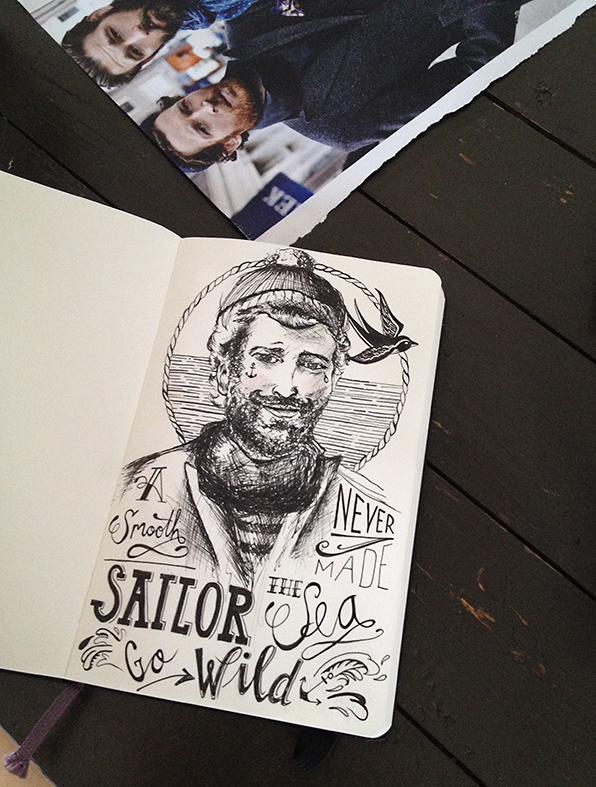 A NEVER
Smooth MADE
SAILOR THE Sea
Go Wild